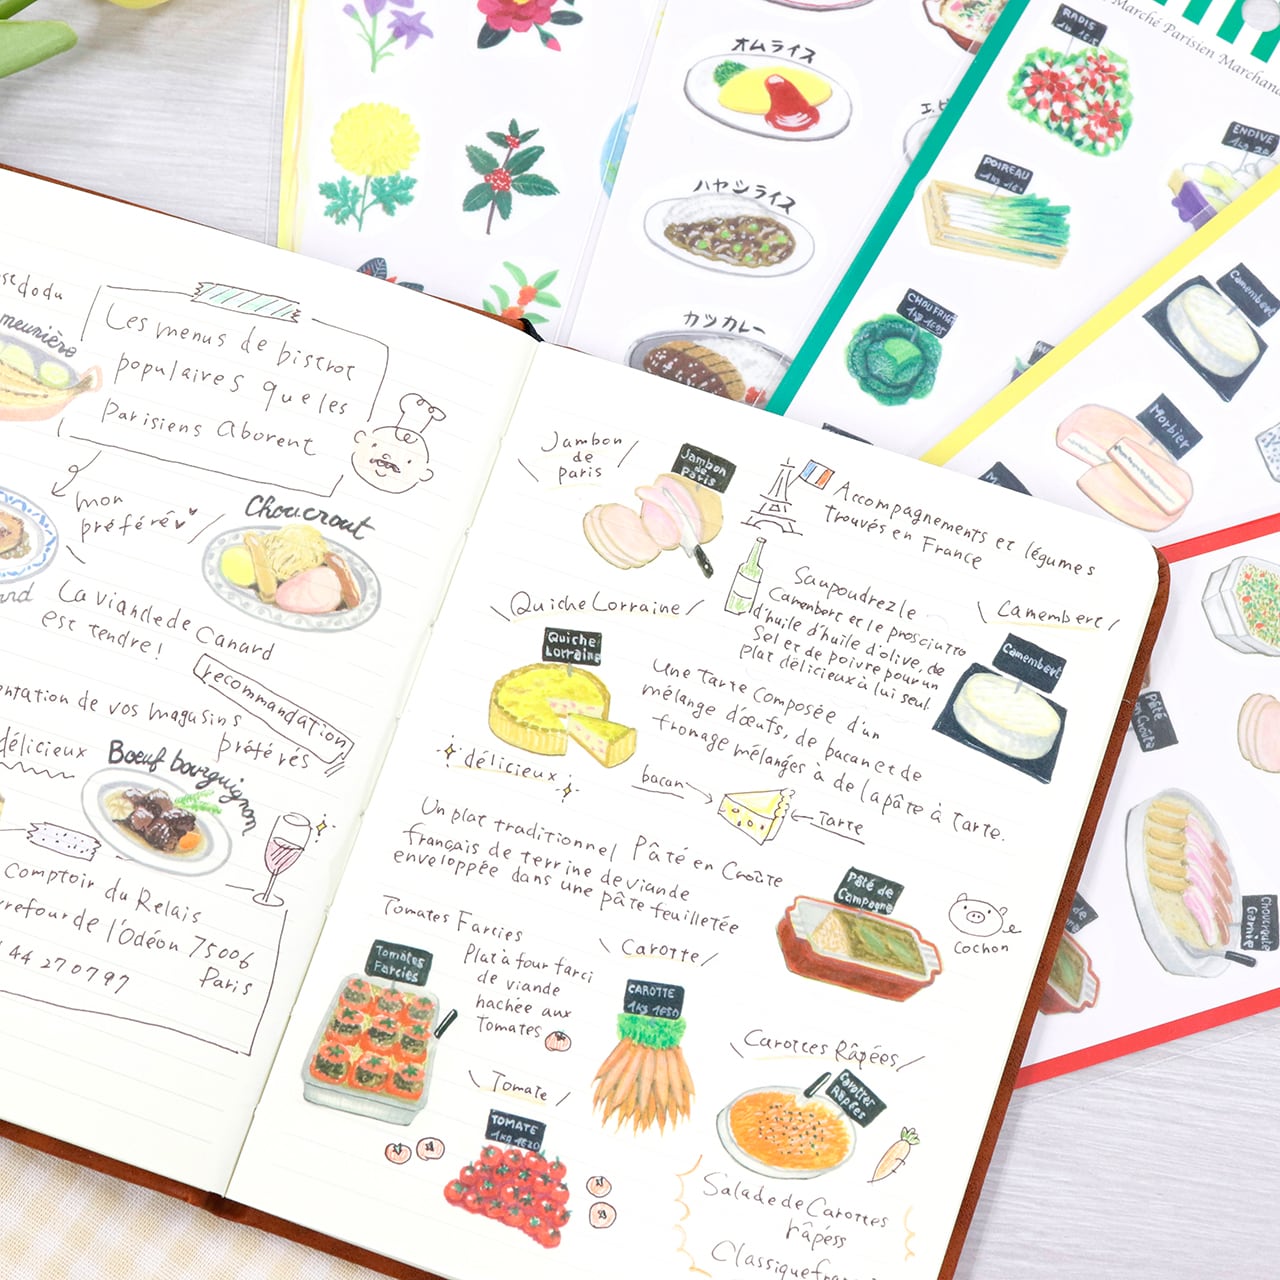 meunière
Les menus de bistrot
populaires que les
Parisiens Aborent
mon
préféré
Choucrout
La viande de Canard
est tendre!
recommandation
entation de vos magasins
préférés
délicieux
Boeuf bourguignon
Comptoir du Relais
refour de l'Odéon 75006
Paris
44 27 07 97
Jambon
de
Paris
Jambon
de
Paris
Accompagnements et légumes
Trouvés en France
Quiche Lorraine
Quiche
Lorraine
Saupoudrez le
Camembert et le prosciutto
d'huile d'huile d'olive, de
Sel et de poivre pour un
plat délicieux à lui seul
Camembert
Camembert
Une Tarte Composée d'un
mélange d'œufs, de bacan et de
fromage mélangés à de la pâte à Tarte.
délicieux
bacan
Tarte
Un plat traditionnel
français de terrine de viande
enveloppée dans une pâte feuilletée
Pâté en Croûte
Pâté de
Campagne
Cochon
Tomates Farcies
Tomates
Farcies
Plat à four farci
de viande
hachée aux
Tomates
Carotte
CAROTTE
1kg 1€50
Tomate
TOMATE
1kg 1€20
Carottes Râpées
Carottes
Râpées
Salade de Carottes
râpéss
オムライス
ハヤシライス
カツカレー
Marché Parisien
RADIS
ENDIVE
POIREAU
CHOU FRISÉ
1kg 1€95
Camembert
Morbier
Pâté
en Croûte
Choucroute
Garnie